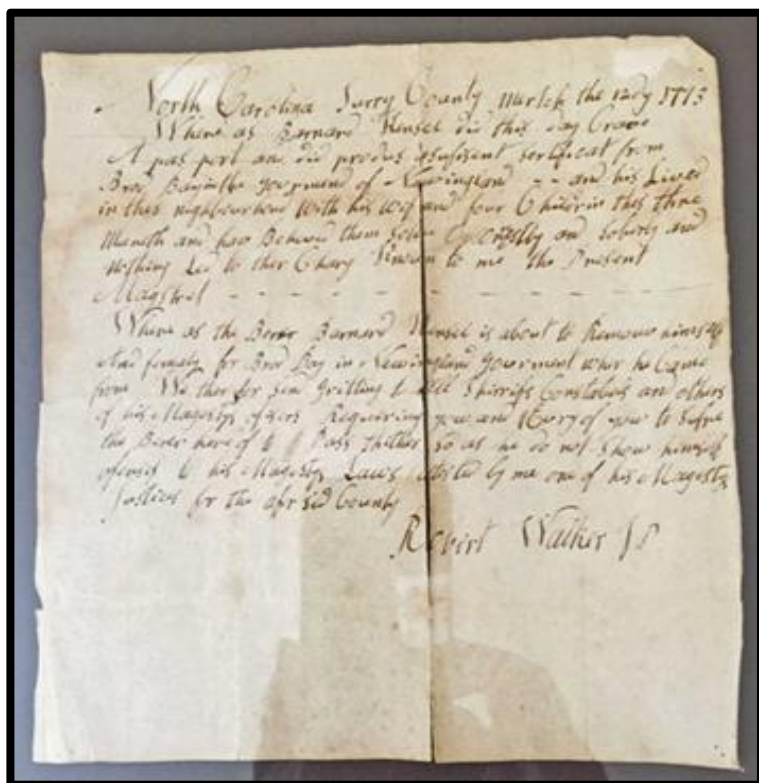 North Carolina Surry County March the 12dy 1773
Where as Barnard Hensel did this day Crave
A pas port and did produs asufisent sertificat from
Brod Bay in the goverment of Newingland - - and his Lived
in this nighbourhood with his wif and four Childrin this three
Moneth and hav Behaved them selve and soberly and
nothing Led to ther Charg Known to me the Present
Magstret - - - - - - - - - - - -
Where as the Berer Barnard Hensel is about to Remove himself
And famaly for Brod Bay in Newingland Goverment wher he Came
from We ther for sen Gritting to all Shirrifs Constables and others
of his Magestys ofisers Requiering you and Every of you to Sufre
the Berer here of to Pass thither so as he do not Show himself
ofensif to his Magestys Laws by me one of his Magestys
Justices for the afor sid County
Robert Walker JP